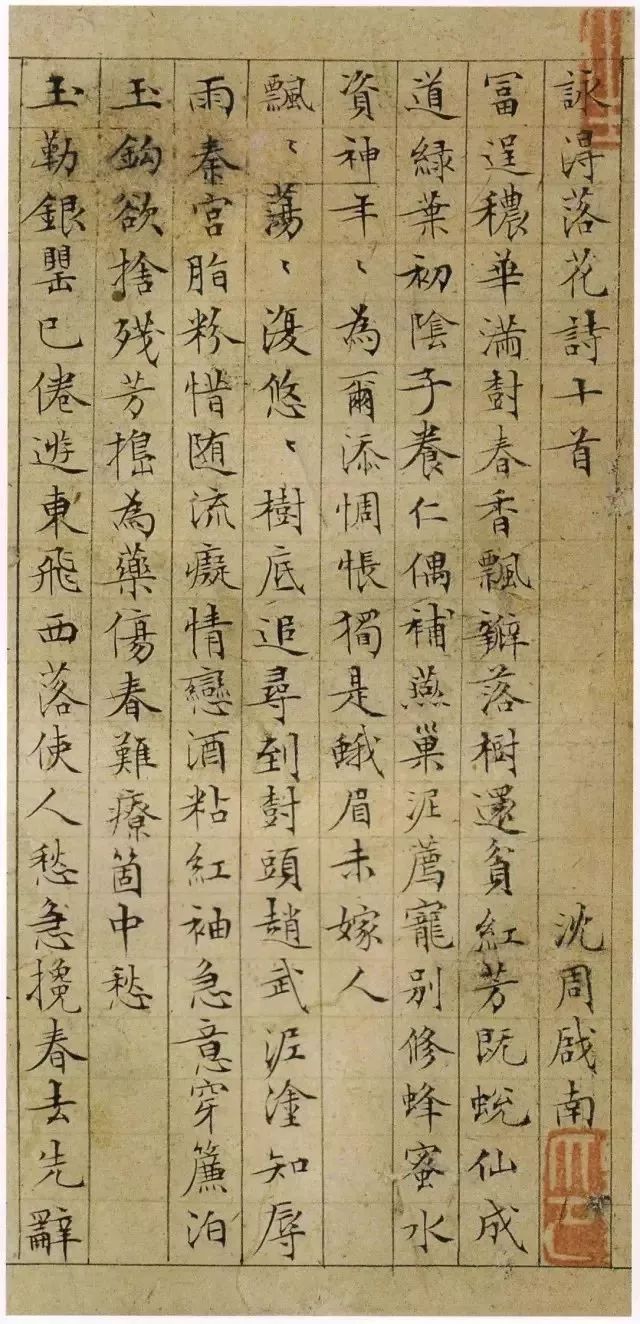 詠淂落花詩十首 沈周啟南
冨逞穠華滿樹春香飄瓣落樹還貧紅芳既蛻仙成
道緑葉初陰子養仁偶補燕巢泥薦寵別修蜂蜜水
資神年、為爾添惆悵獨是蛾眉未嫁人
飄、蕩、復悠、樹底追尋到樹頭趙武泥塗知辱
雨秦宮脂粉惜随流癡情戀酒粘紅袖急意穿簾泊
玉鈎欲捨殘芳搗為藥傷春難療箇中愁
玉勒銀罌已倦遊東飛西落使人愁急攙春去先辭